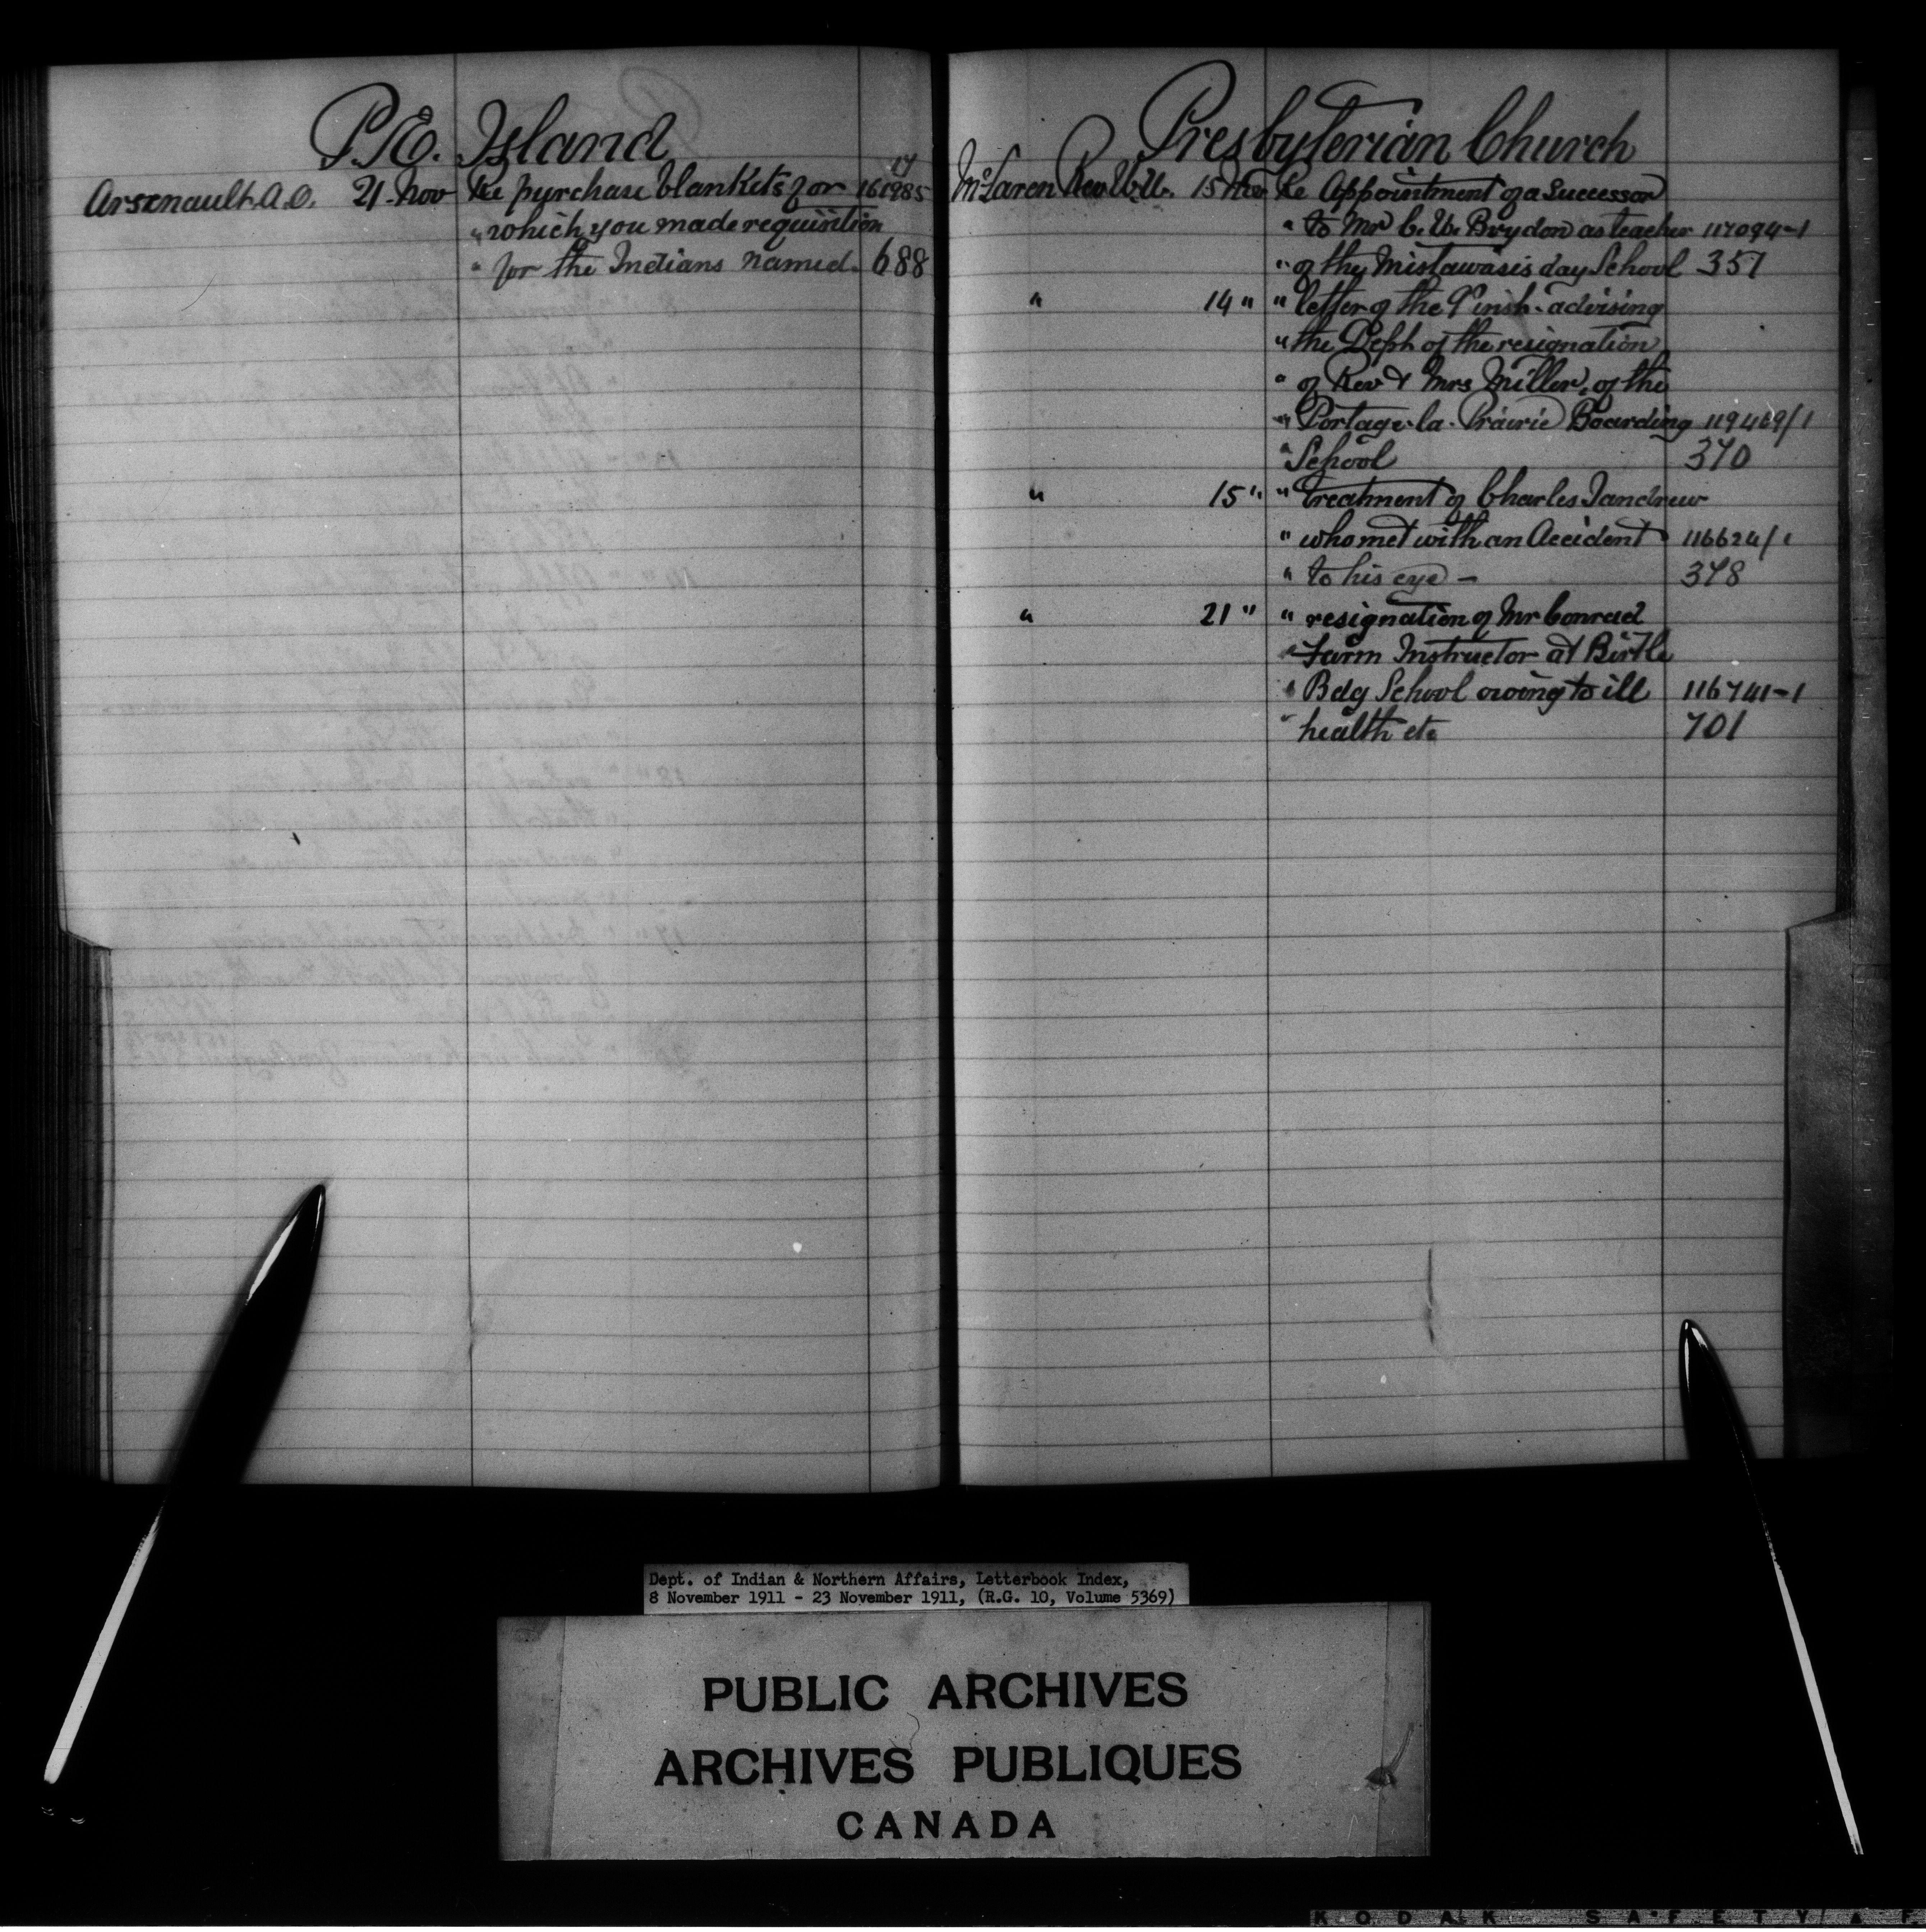 P.E. Island
17
Arsenault A.O. 21 Nov Re purchase blankets for 161985
" which you made requisition
" for the Indians named. 688
Presbyterian Church
McLaren Rev 15 Nov Re Appointment of a Successor
" to Mr C. W. Brydon as teacher 117094-1
" of the Mistawasis day School 357
" 14 " " letter of the 9th inst. advising
" the Dept of the resignation
" of Rev & Mrs Miller, of the
" Portage-la-Prairie Boarding 119469/1
" School 370
" 15 " " treatment of Charles Tandrew
" who met with an Accident 116624/1
" to his eye - 378
" 21 " " resignation of Mr Conrad
" Farm Instructor at Birtle
" Bdg School owing to ill 116741-1
" health etc 701
Dept. of Indian & Northern Affairs, Letterbook Index,
8 November 1911 - 23 November 1911, (R.G. 10, Volume 5369)
PUBLIC ARCHIVES
ARCHIVES PUBLIQUES
CANADA
KODAK SAFETY